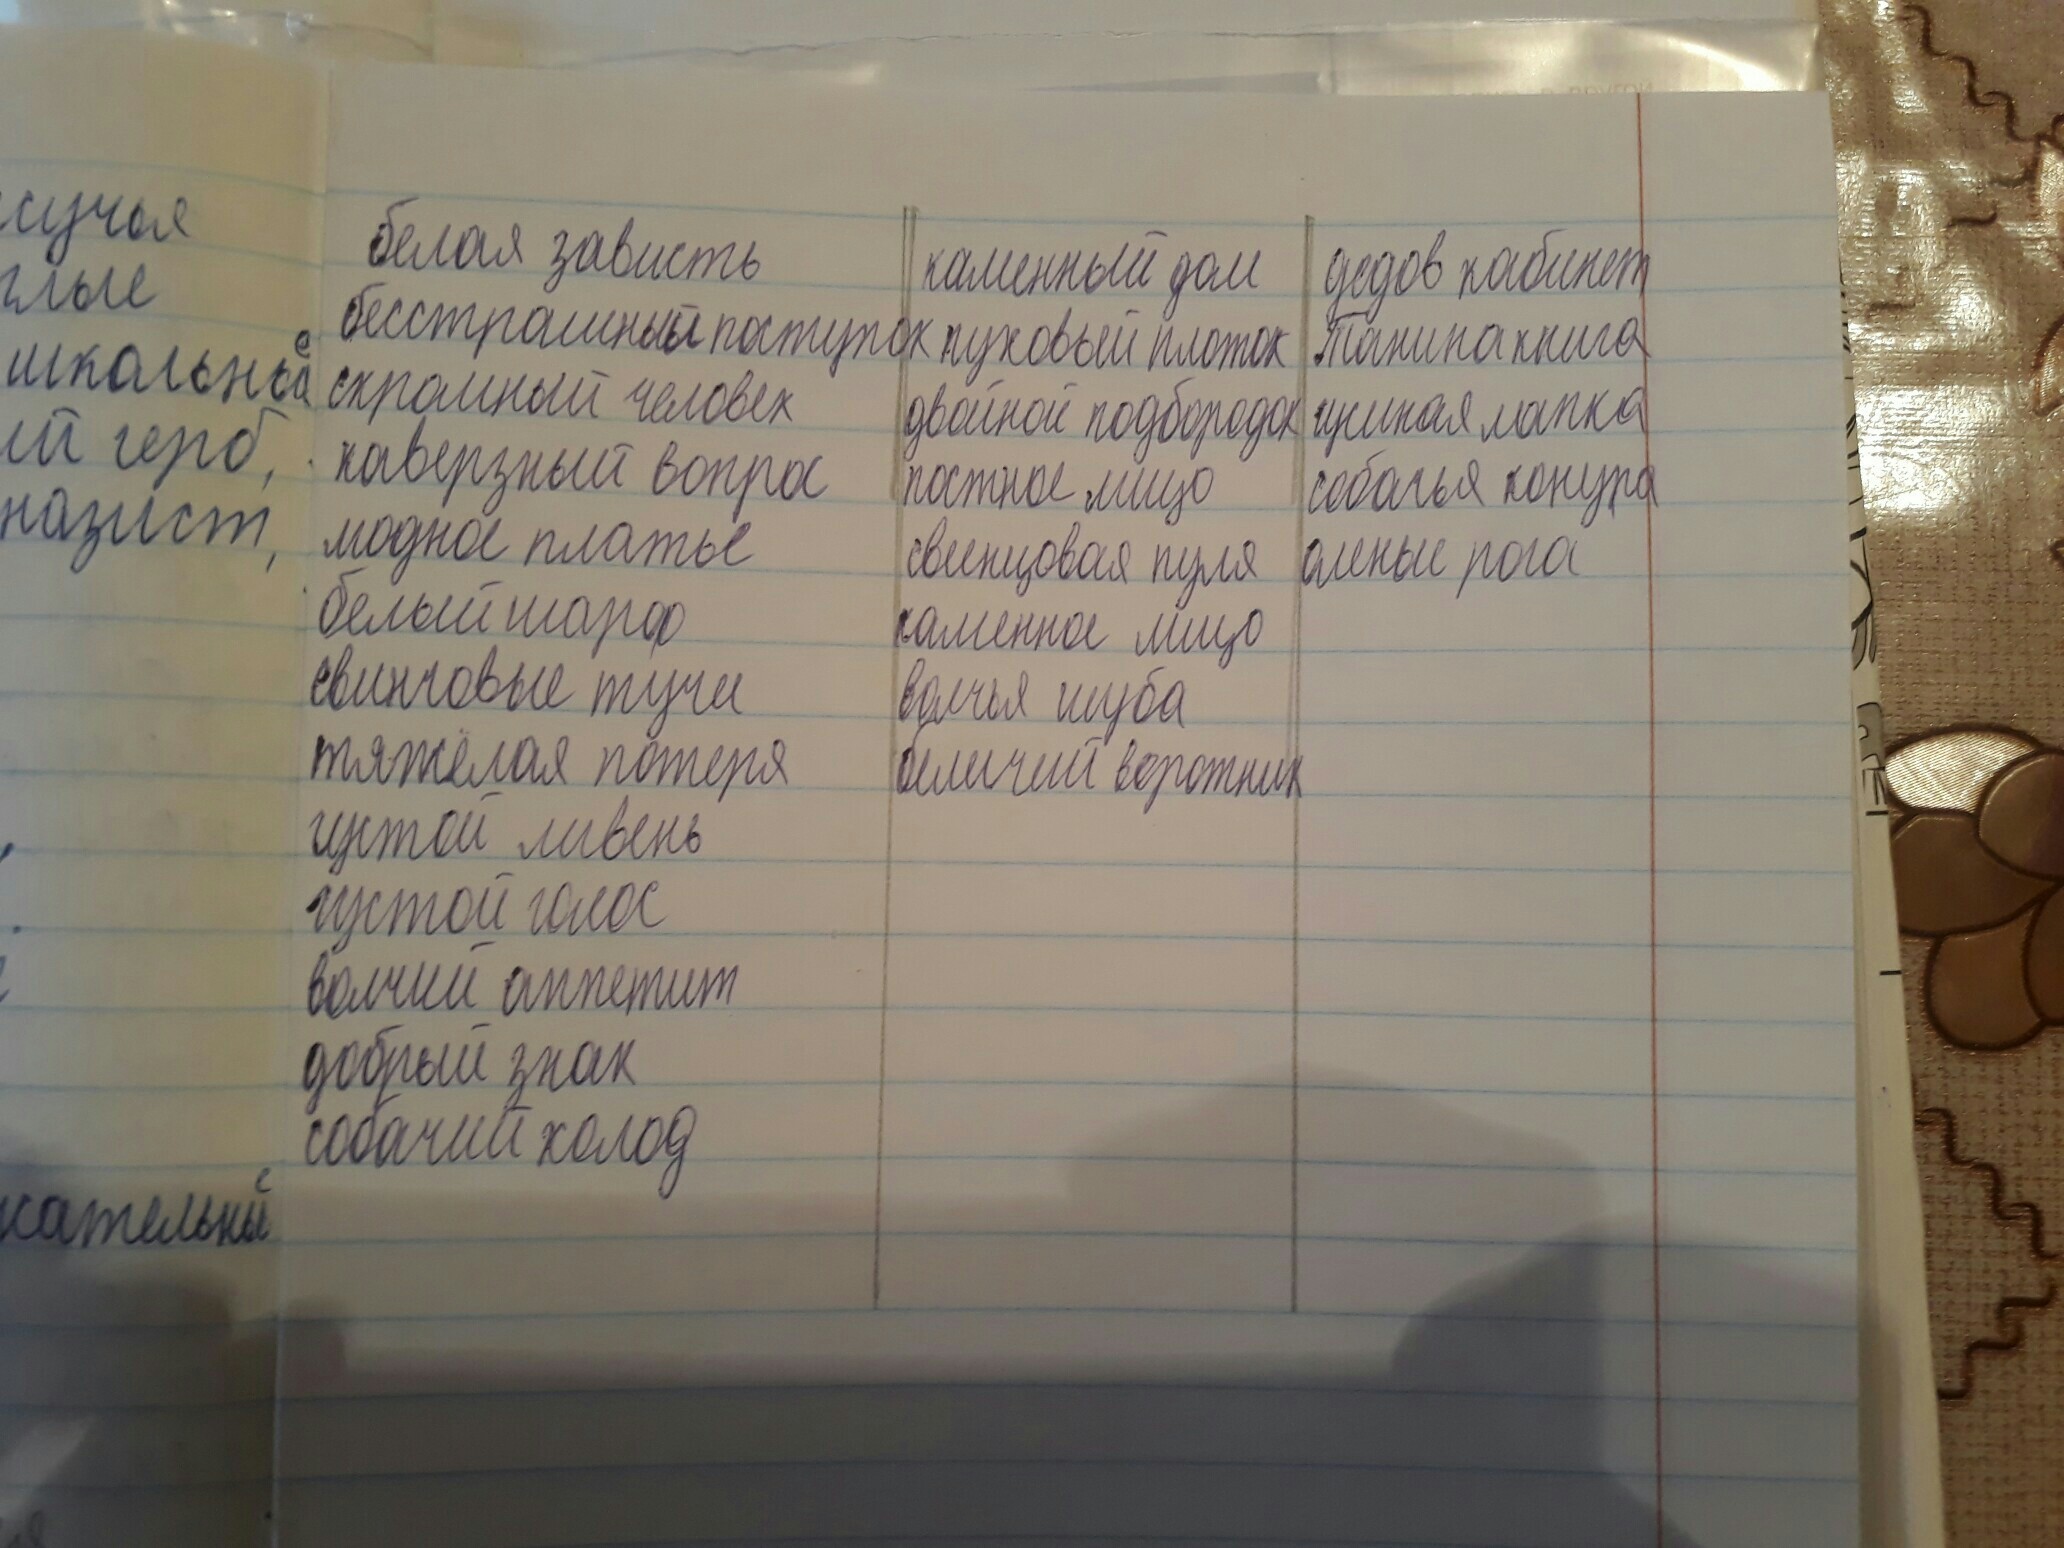 сучья
глые
школьный
ий герб,
назист,
кательный
белая зависть
бесстрашный поступок
скромный человек
каверзный вопрос
модное платье
белый шарф
свинцовые тучи
тяжёлая потеря
густой ливень
густой голос
волчий аппетит
добрый знак
собачий холод
каменный дом
пуховый платок
двойной подбородок
постное лицо
свинцовая пуля
каменное лицо
волчья шуба
беличий воротник
дедов кабинет
Танина книга
лапка
собачья конура
оленьи рога